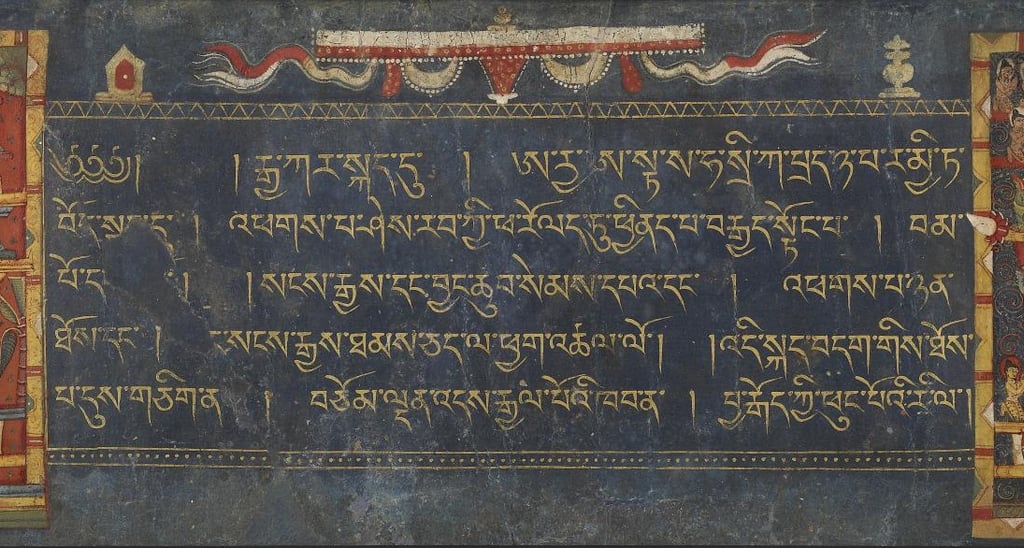 ༄༅༅། ། རྒྱ་ཀར་སྐད་དུ་ ། ཨ་རྱ་ ཨ་སྟ་ས་ཧ་སྲི་ཀ་པྲད་ཉ་པ་ར་མྱི་ཏ་
བོད་སྐད་དུ་ ། འཕགས་པ་ཤེས་རབ་ཀྱི་ཕ་རོལད་ཏུ་ཕྱིནད་པ་བརྒྱད་སྟོང་པ་ ། བམ་
པོ་ད ། །སངས་རྒྱས་དང་བྱང་ཆུབ་སེམས་དཔའ་དང་ ། འཕགས་པ་ཉན་
ཐོས་དང་ ། སངས་རྒྱས་ཐམས་ཅད་ལ་ཕྱག་འཚལ་ལོ། །འདི་སྐད་བདག་གིས་ཐོས་
པ་དུས་གཅིག་ན ། བཅོམ་ལྡན་འདས་རྒྱལཾ་པོའི་ཁབ་ན་ ། བྱ་རྒོད་ཀྱི་ཕུང་པོའི་རི་ལི་།